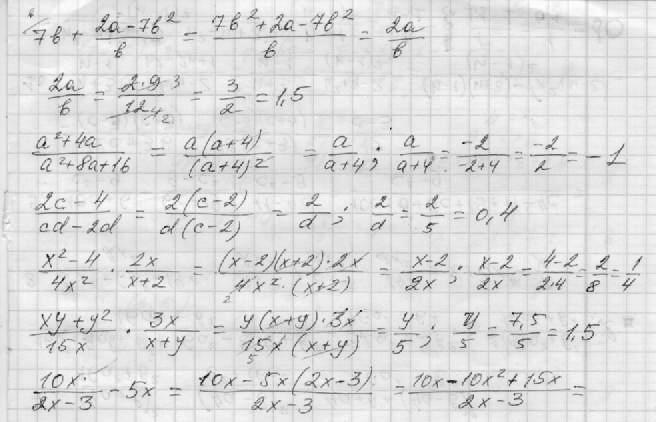 7b + (2a - 7b²)/b = (7b² + 2a - 7b²)/b = 2a/b
2a/b = (2·9 3)/(12 4 2) = 3/2 = 1,5
(a² + 4a)/(a² + 8a + 16) = a(a + 4)/(a + 4)² = a/(a + 4); a/(a + 4) = -2/(-2 + 4) = -2/2 = -1
(2c - 4)/(cd - 2d) = 2(c - 2)/d(c - 2) = 2/d; 2/d = 2/5 = 0,4
(x² - 4)/4x² · 2x/(x + 2) = ((x - 2)(x + 2)·2x)/(4 2 x²·(x + 2)) = (x - 2)/2x; (x - 2)/2x = (4 - 2)/(2·4) = 2/8 = 1/4
(xy + y²)/15x · 3x/(x + y) = (y(x + y)·3x)/(15 5 x(x + y)) = y/5; y/5 = 7,5/5 = 1,5
10x/(2x - 3) - 5x = (10x - 5x(2x - 3))/(2x - 3) = (10x - 10x² + 15x)/(2x - 3) =